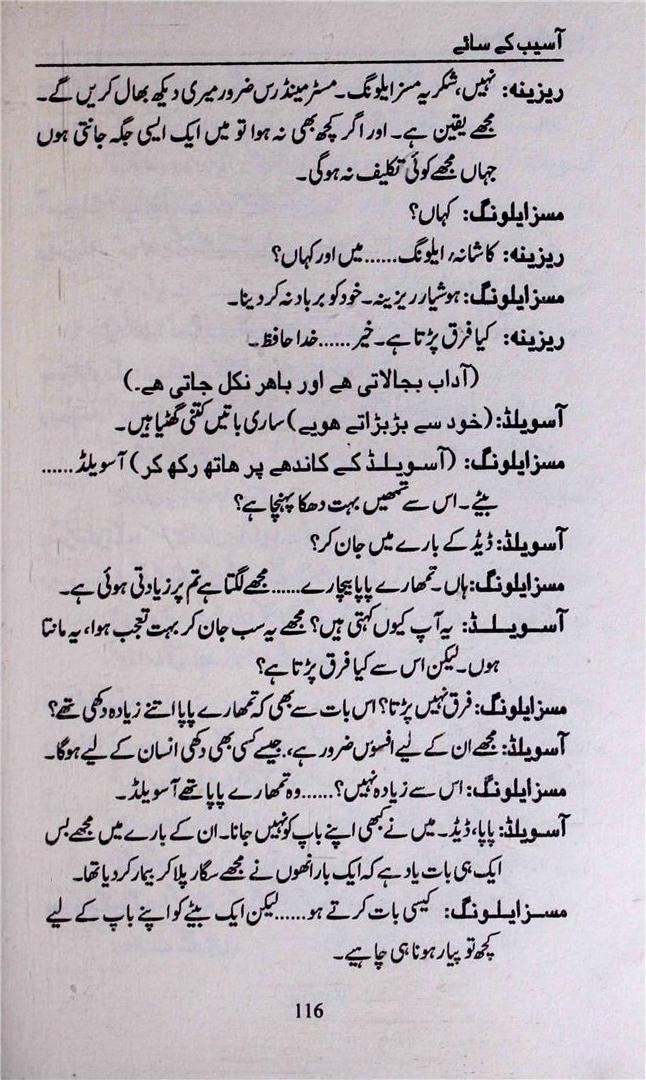 آسیب کے سائے
ریزینه: نہیں، شکریہ مسز ایلونگ۔ مسٹر مینڈرس ضرور میری دیکھ بھال کریں گے۔
مجھے یقین ہے۔ اور اگر کچھ بھی نہ ہوا تو میں ایک ایسی جگہ جانتی ہوں
جہاں مجھے کوئی تکلیف نہ ہوگی۔
مسز ایلونگ: کہاں؟
ریزینه: کاشانۂ ایلونگ......میں اور کہاں؟
مسز ایلونگ: ہوشیار ریزینہ۔ خود کو برباد نہ کر دینا۔
ریزینه: کیا فرق پڑتا ہے۔ خیر......خدا حافظ۔
(آداب بجالاتی ھے اور باھر نکل جاتی ھے۔)
آسویلڈ: (خود سے بڑبڑاتے ھویے) ساری باتیں کتنی گھٹیا ہیں۔
مسز ایلونگ: (آسویلڈ کے کاندھے پر ھاتھ رکھ کر) آسویلڈ......
بیٹے۔ اس سے تمھیں بہت دھکا پہنچا ہے؟
آسویلڈ: ڈیڈ کے بارے میں جان کر؟
مسز ایلونگ: ہاں۔ تمھارے پاپا بیچارے......مجھے لگتا ہے تم پر زیادتی ہوئی ہے۔
آسویلڈ: یہ آپ کیوں کہتی ہیں؟ مجھے یہ سب جان کر بہت تعجب ہوا، یہ مانتا
ہوں۔ لیکن اس سے کیا فرق پڑتا ہے؟
مسز ایلونگ: فرق نہیں پڑتا؟ اس بات سے بھی کہ تمھارے پاپا اتنے زیادہ دکھی تھے؟
آسویلڈ: مجھے ان کے لیے افسوس ضرور ہے، جیسے کسی بھی دکھی انسان کے لیے ہوگا۔
مسز ایلونگ: اس سے زیادہ نہیں؟......وہ تمھارے پاپا تھے آسویلڈ۔
آسویلڈ: پاپا، ڈیڈ۔ میں نے کبھی اپنے باپ کو نہیں جانا۔ ان کے بارے میں مجھے بس
ایک ہی بات یاد ہے کہ ایک بار انھوں نے مجھے سگار پلا کر بیمار کر دیا تھا۔
مسز ایلونگ: کیسی بات کرتے ہو......لیکن ایک بیٹے کو اپنے باپ کے لیے
کچھ تو پیار ہونا ہی چاہیے۔
116